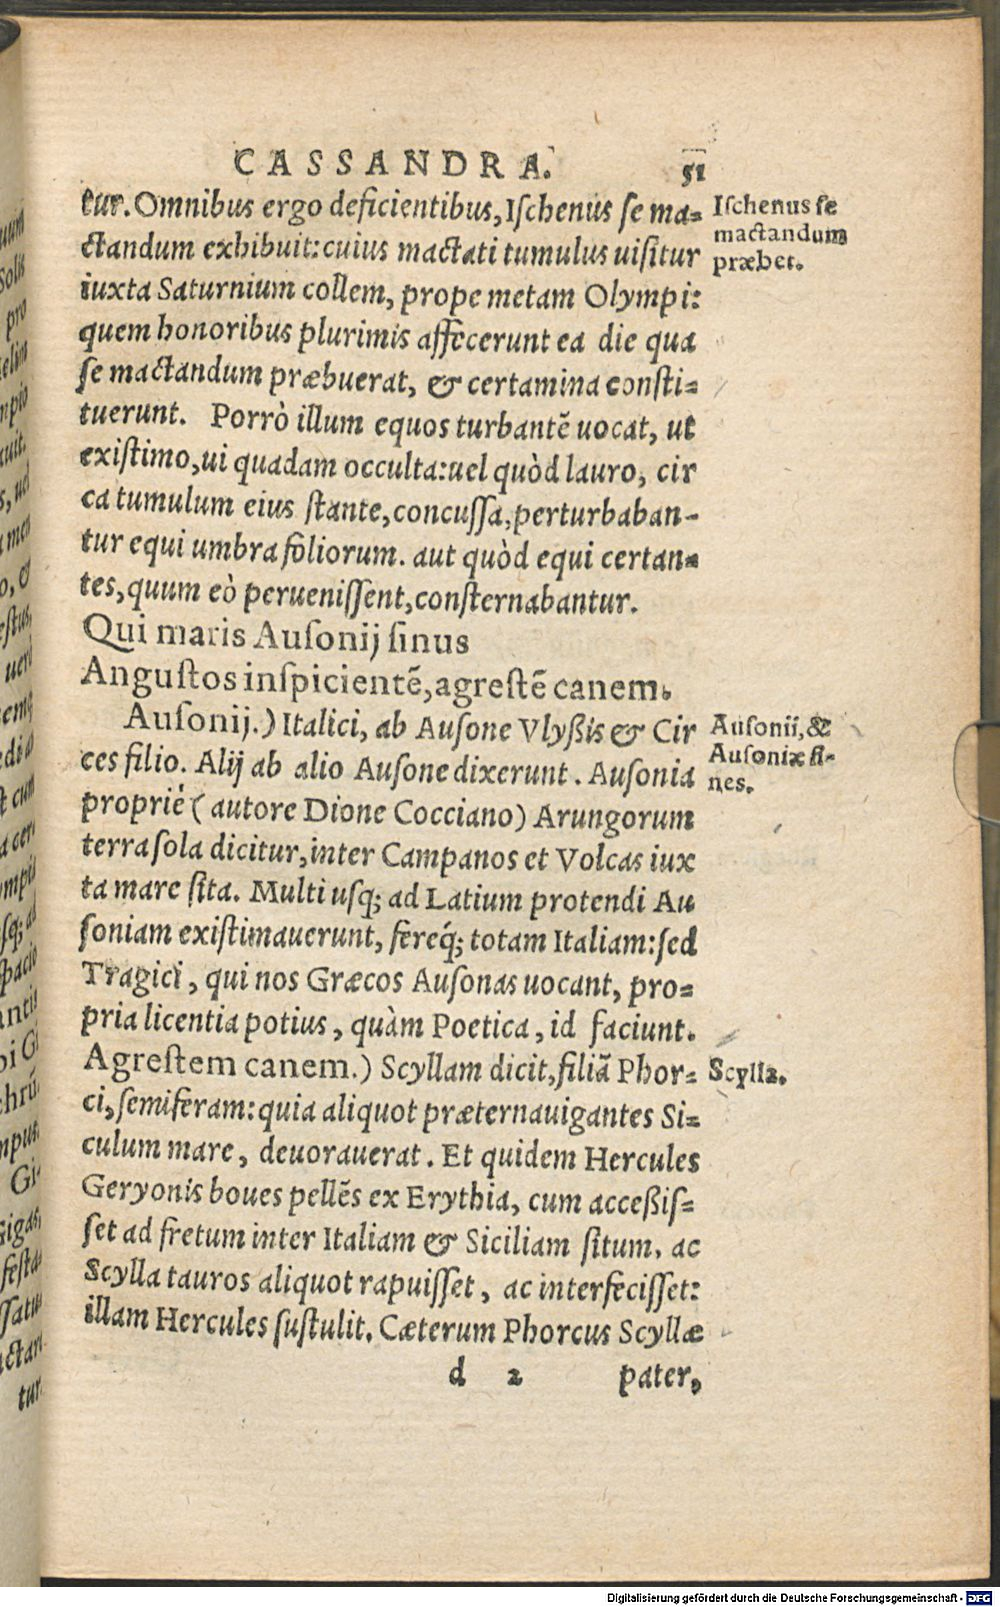 CASSANDRA. 51
tur. Omnibus ergo deficientibus, Iſchenus ſe ma-
ctandum exhibuit: cuius mactati tumulus uiſitur
iuxta Saturnium collem, prope metam Olympi:
quem honoribus plurimis affecerunt ea die qua
ſe mactandum præbuerat, & certamina conſti-
tuerunt. Porrò illum equos turbantē uocat, ut
existimo, ui quadam occulta: uel quòd lauro, cir
ca tumulum eius stante, concuſſa, perturbaban-
tur equi umbra foliorum. aut quòd equi certan-
tes, quum eò perueniſſent, consternabantur.
Qui maris Auſonij ſinus
Angustos inſpicientē, agrestē canem.
Auſonij.) Italici, ab Auſone Vlyßis & Cir
ces filio. Alij ab alio Auſone dixerunt. Auſonia
propriè (autore Dione Cocciano) Arungorum
terra ſola dicitur, inter Campanos et Volcas iux
ta mare ſita. Multi uſq; ad Latium protendi Au
ſoniam existimauerunt, fereq́; totam Italiam: ſed
Tragici, qui nos Græcos Auſonas uocant, pro-
pria licentia potius, quàm Poetica, id faciunt.
Agrestem canem.) Scyllam dicit, filiā Phor-
ci, ſemiferam: quia aliquot præternauigantes Si-
culum mare, deuorauerat. Et quidem Hercules
Geryonis boues pellēs ex Erythia, cum acceßiſ-
ſet ad fretum inter Italiam & Siciliam ſitum, ac
Scylla tauros aliquot rapuiſſet, ac interfeciſſet:
illam Hercules ſustulit. Cæterum Phorcus Scyllæ
d 2 pater,
Iſchenus ſe
mactandum
præbet.
Auſonii, &
Auſoniæ fi-
nes.
Scylla.
Digitalisierung gefördert durch die Deutsche Forschungsgemeinschaft - DFG